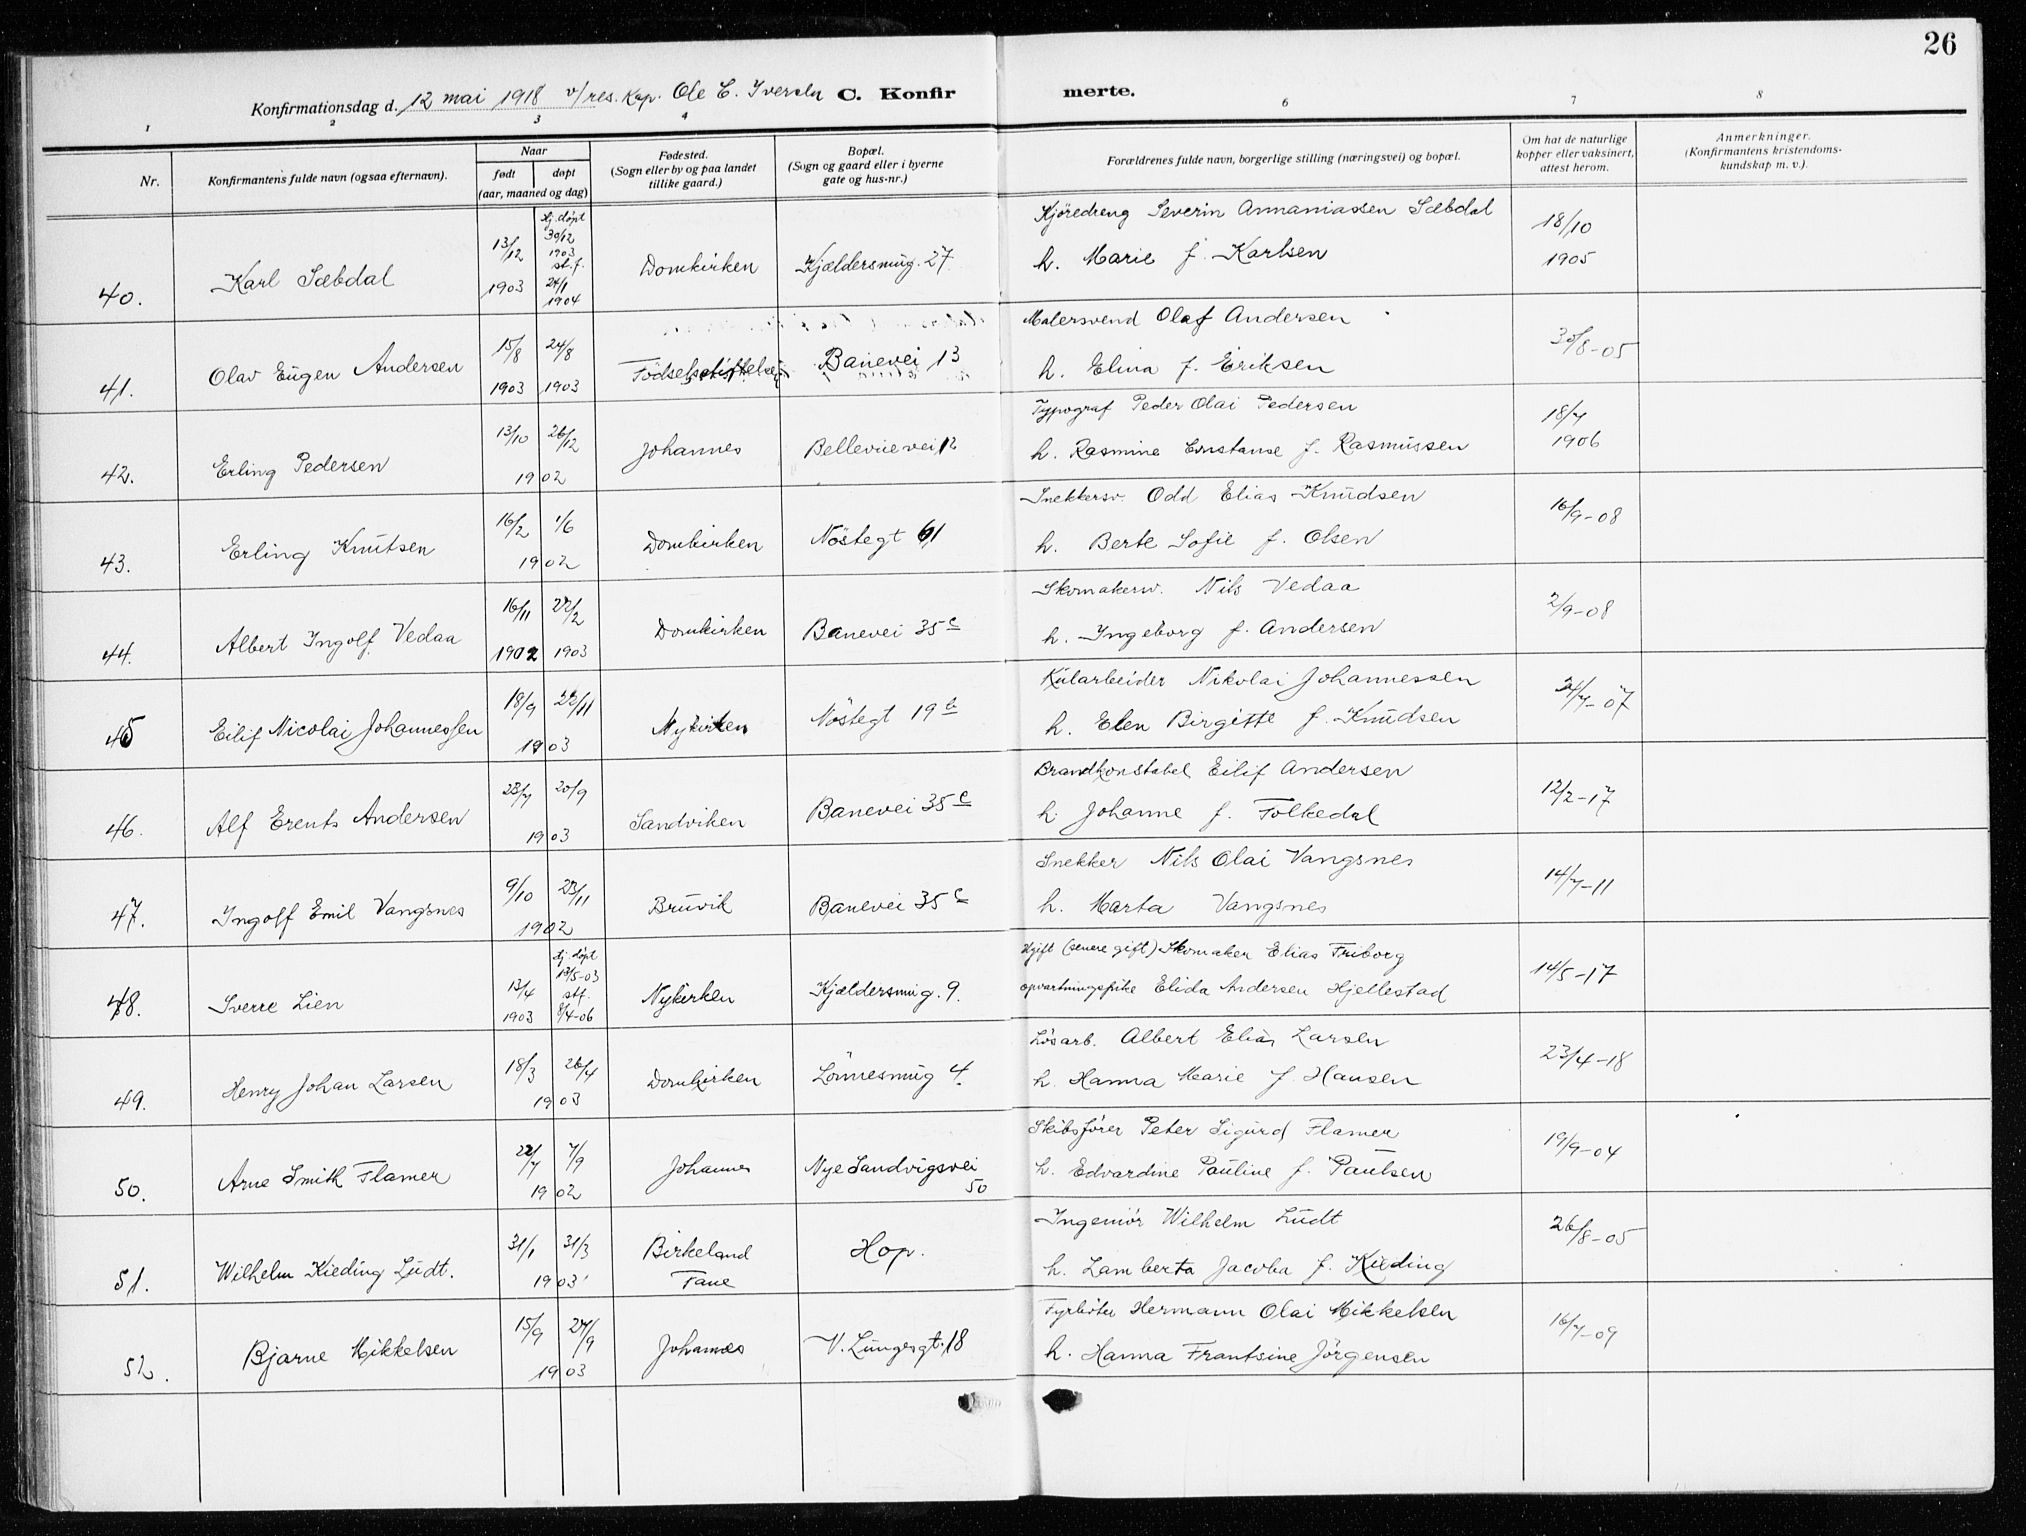 26
Konfirmationsdag d. 12 mai 1918 v/res. kap. Ole C. Iversen C. Konfirmerte.
1 2 3 4 6 7 8
Nr. Konfirmantens fulde navn (ogsaa efternavn). Naar født døpt (aar, maaned og dag) Fødested. (Sogn eller by og paa landet tillike gaard.) Bopæl. (Sogn og gaard eller i byerne gate og hus-nr.) Forældrenes fulde navn, borgerlige stilling (næringsvei) og bopæl. Om hat de naturlige kopper eller vaksinert, attest herom. Anmerkninger. (Konfirmantens kristendomskundskap m. v.).
40. Karl Sæbdal 13/12 1903 hj. døpt 30/12 1903 st.f. 24/1 1904 Domkirken Kjældersmug. 27 Kjøredreng Severin Annaniassen Sæbdal
h. Marie f. Karlsen 18/10 1905
41. Olav Eugen Andersen 15/8 1903 24/8 1903 Fødselsstiftelsen Banevei 13 Malersvend Olaf Andersen
h. Elina f. Eriksen 30/8-05
42. Erling Pedersen 13/10 26/12 1902 Johannes Bellevuevei 12 Typograf Peder Olai Pedersen
h. Rasmine Constanse f. Rasmussen 18/7 1906
43. Erling Knutsen 16/2 1/6 1902 Domkirken Nöstegt 61 Snekkersv. Odd Elias Knudsen
h. Berte Sofie f. Olsen 16/9-08
44. Albert Ingolf Vedaa 16/11 1902 22/2 1903 Domkirken Banevei 35c Skomakersv. Nils Vedaa
h. Ingeborg f. Andersen 2/9-08
45 Eilif Nicolai Johannessen 18/9 22/11 1903 Nykirken Nöstegt 19b Kularbeider Nikolai Johannessen
h. Elen Birgitte f. Knudsen 24/7-07
46. Alf Erents Andersen 23/7 20/9 1903 Sandviken Banevei 35c Brandkonstabel Eilif Andersen
h. Johanne f. Folkedal 12/2-17
47. Ingolf Emil Vangsnes 9/10 23/11 1902 Bruvik Banevei 35c Snekker Nils Olai Vangsnes
h. Marta Vangsnes 14/7-11
48. Sverre Lien 13/4 1903 hj. døpt 13/5-03 stf. 8/4-06 Nykirken Kjældersmug. 9. Ugift (senere gift) Skomaker Elias Friborg
opvartningspike Elida Andersen Hjellestad 14/5-17
49. Henry Johan Larsen 18/3 26/4 1903 Domkirken Lönnesmug 4. Lösarb. Albert Elias Larsen
h. Hanna Marie f. Hansen 23/4-18
50. Arne Smith Flamer 22/7 7/9 1902 Johannes Nye Sandvigsvei 50 Skibsfører Peter Sigurd Flamer
h. Edvardine Pauline f. Paulsen 19/9-04
51. Wilhelm Kieding Ludt. 31/1 31/3 1903 Birkeland Fane Hop. Ingeniör Wilhelm Ludt
h. Lamberta Jacoba f. Kieding 26/8-05
52. Bjarne Mikkelsen 15/9 27/9 1903 Johannes V. Lungegt. 18 Fyrböter Hermann Olai Mikkelsen
h. Hanna Frantsine Jörgensen 16/7-09